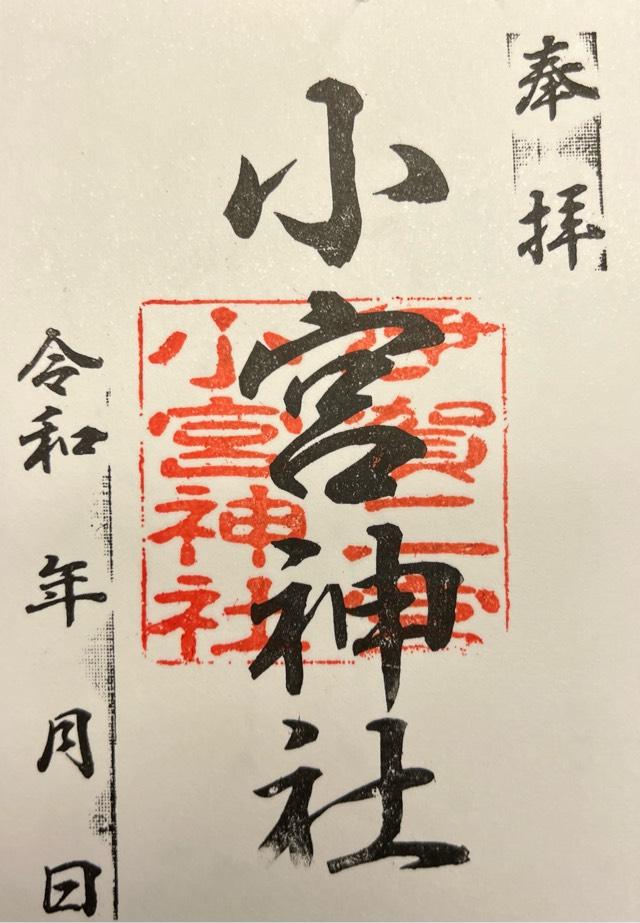 奉拝
小宮神社
伊賀二宮
小宮神社
令和 年 月 日